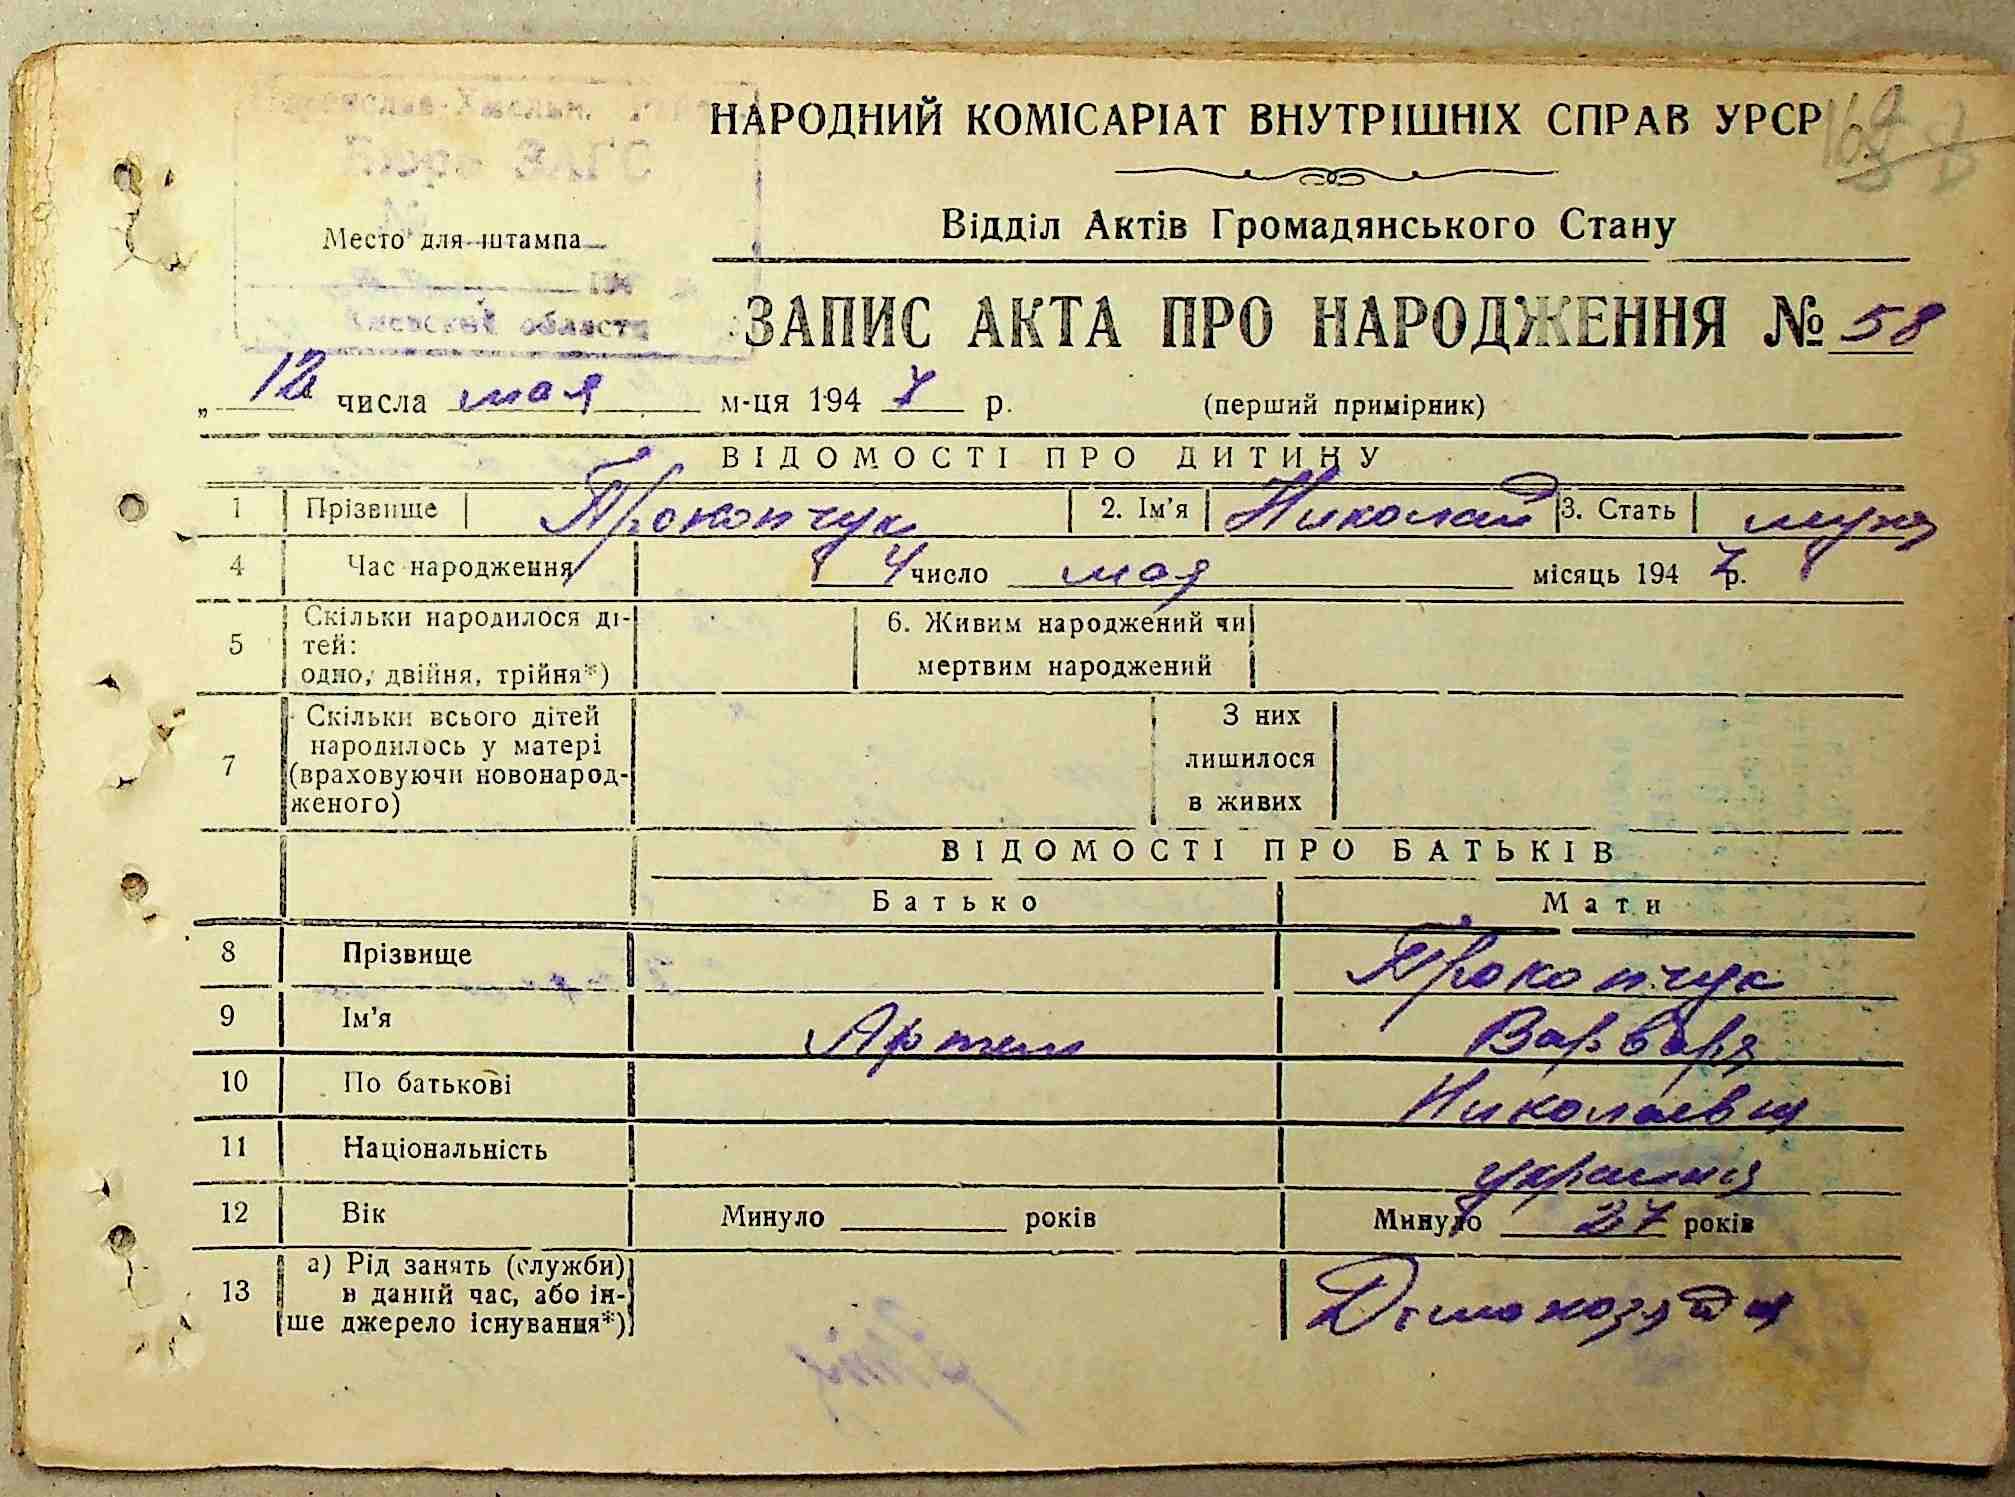 НАРОДНИЙ КОМІСАРІАТ ВНУТРІШНІХ СПРАВ УРСР
Бюро ЗАГС
№
Место для штампа
194
Киевской области
Відділ Актів Громадянського Стану
ЗАПИС АКТА ПРО НАРОДЖЕННЯ № 58
„ 12 числа мая м-ця 194 7 р. (перший примірник)
ВІДОМОСТІ ПРО ДИТИНУ
1 Прізвище Прокопчук 2. Ім'я Николай 3. Стать муж
4 Час народження 4 число мая місяць 194 7 р.
5 Скільки народилося ді-
тей:
одно, двійня, трійня*)
6. Живим народжений чи
мертвим народжений
7 Скільки всього дітей
народилось у матері
(враховуючи новонарод-
женого)
З них
лишилося
в живих
ВІДОМОСТІ ПРО БАТЬКІВ
Батько Мати
8 Прізвище Прокопчук
9 Ім'я Артем Варвара
10 По батькові
11 Національність
12 Вік Минуло років Минуло 27 років
13 а) Рід занять (служби)
в даний час, або ін-
ше джерело існування*)